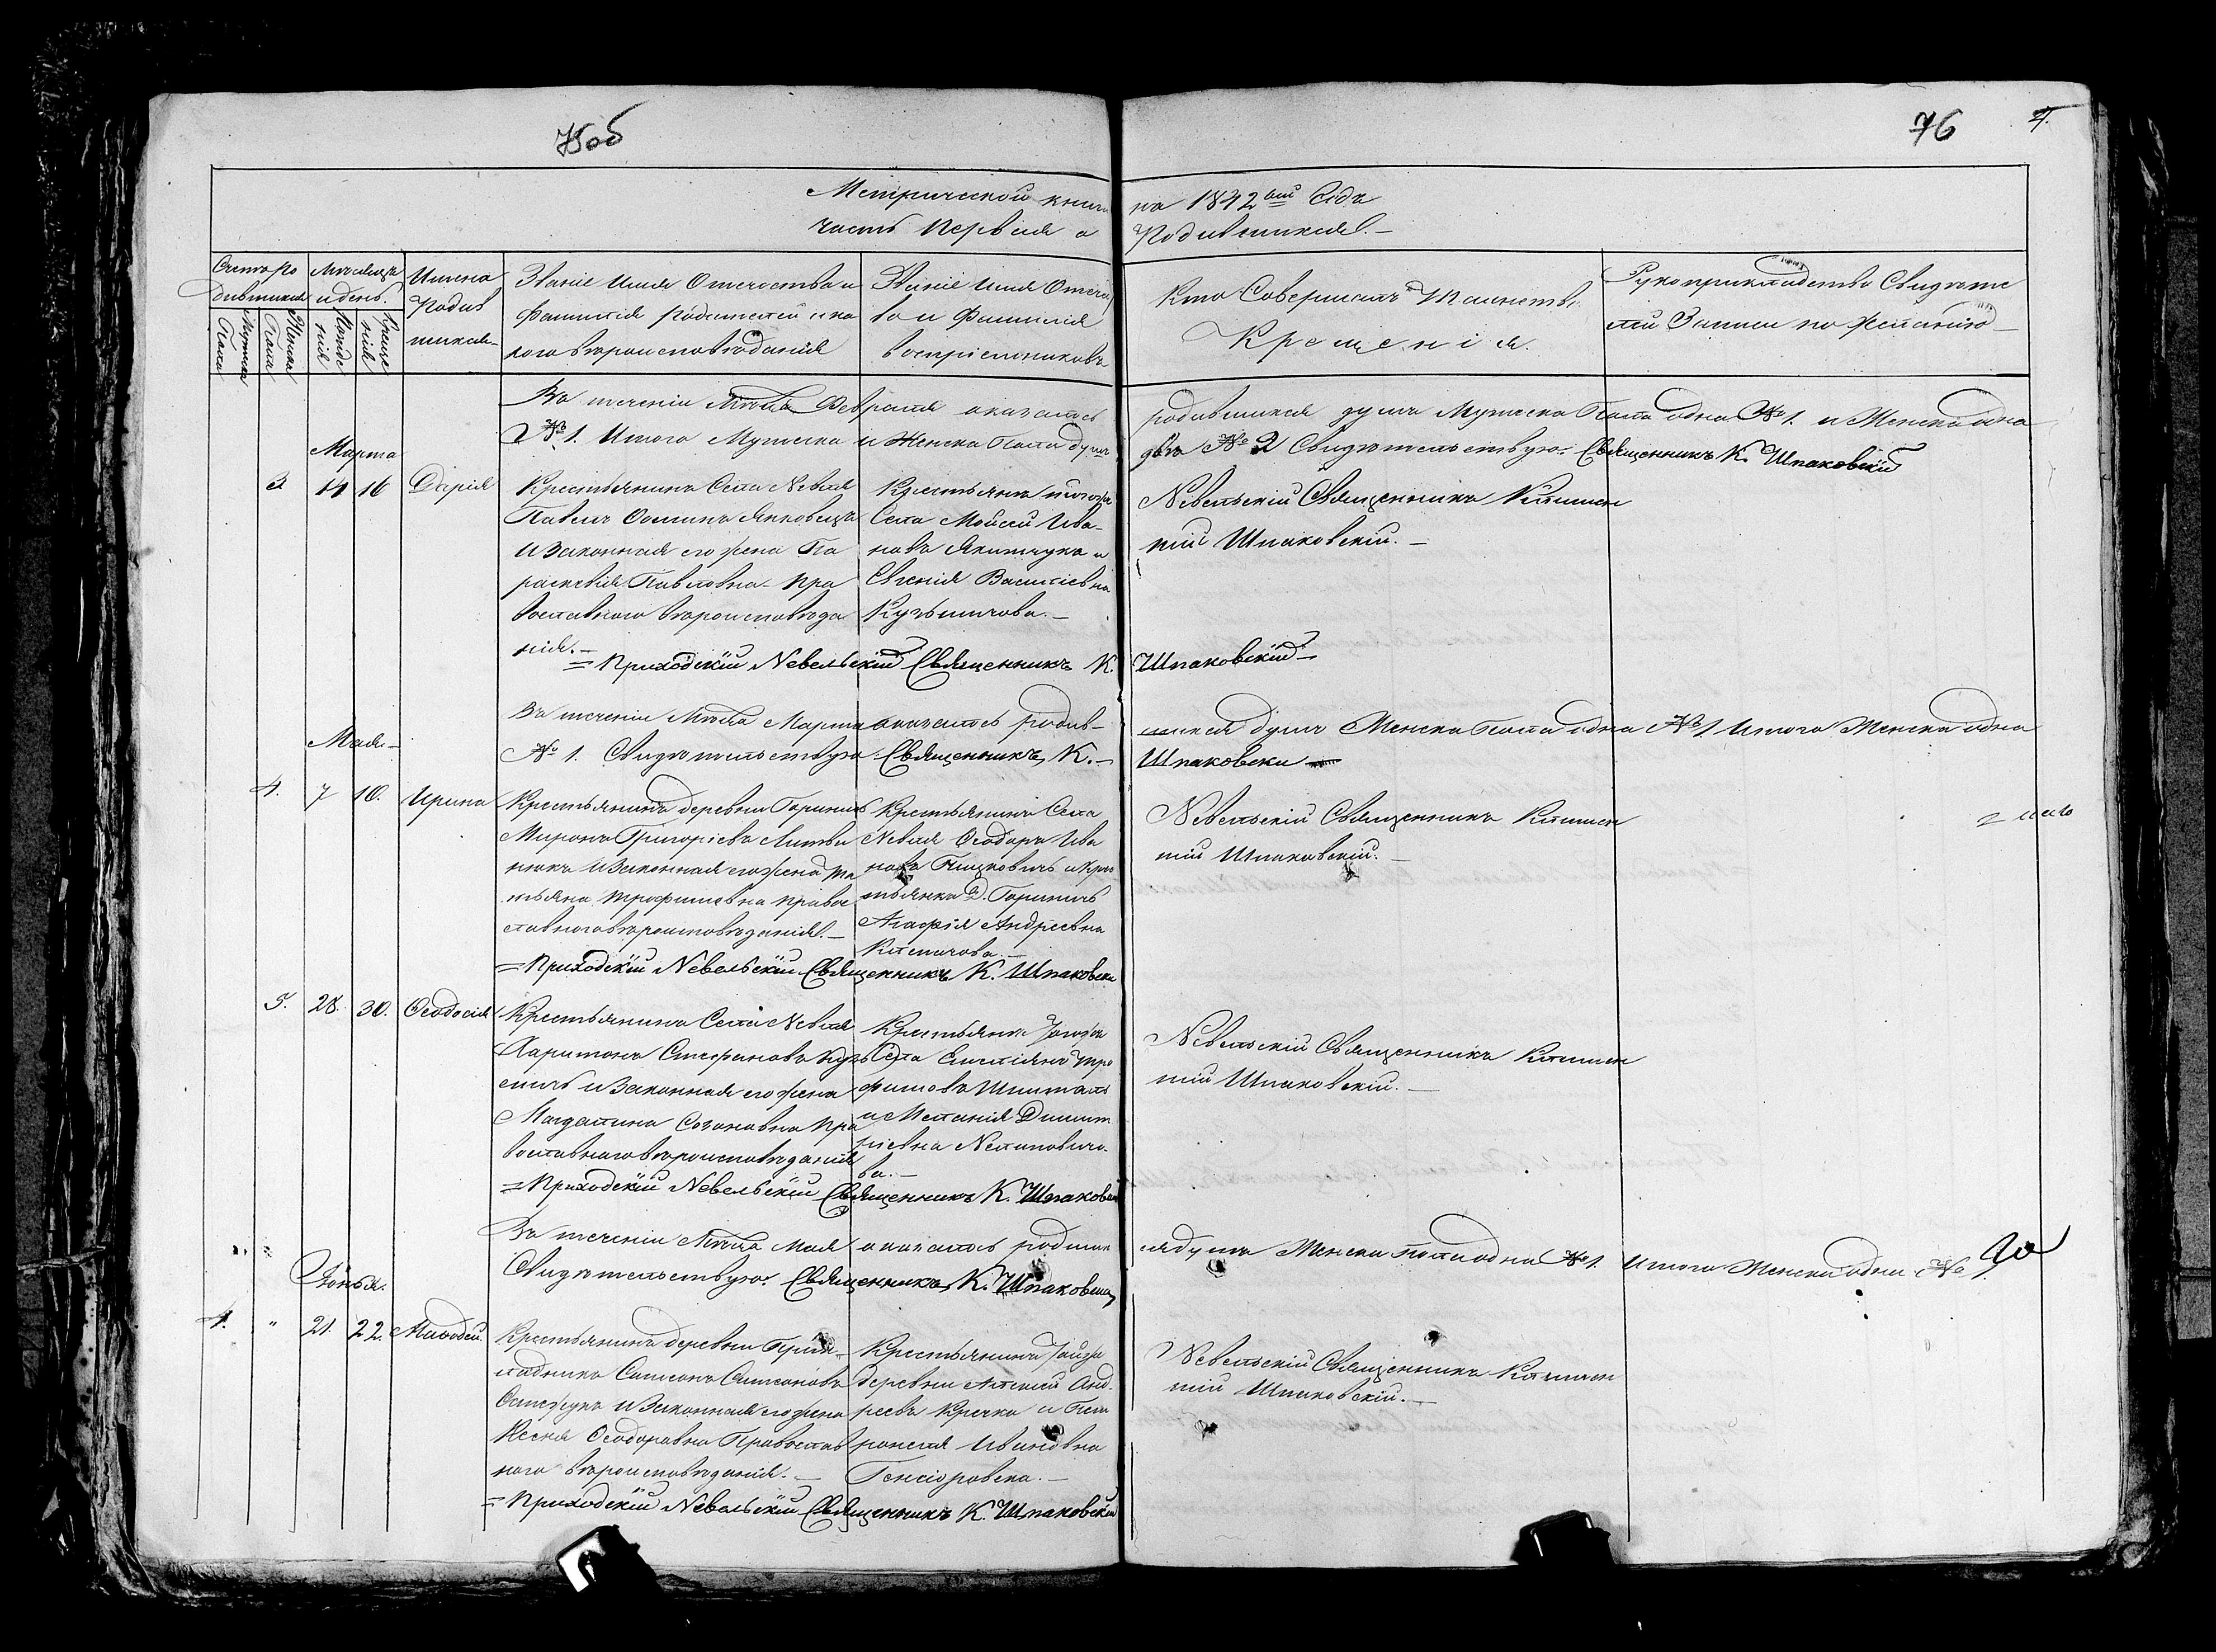 75об
76
Метрической книги на 1842вый Годъ
часть Первая о Родившихся.
Счетъ ро
дившихся
Мужеска
Пола
Женска
Пола
Месяцъ
и день.
Рожде
нія
Креще
нія
Имена
Родив
шихся
Званіе Имя Отечество и
Фамилія Родителей и ка
кого вѣроисповѣданія
Званіе Имя Отечест
во и Фамилія
воспріемниковъ
Кто Совершалъ Таинство
Крещенія.
Рукоприкладство Свидѣте
лей Записи по желанію
Въ теченіи Мѣсяца Февраля оказалось родившихся душъ Мужеска Пола одна № 1. и Женска одна
№ 1. Итого Мужеска и Женска Пола душъ двѣ № 2 Свидѣтельствую: Священникъ К. Шпаковскій
Марта
3 14 16 Дарія
Крестьянинъ Села Невля
Павелъ Осиповъ Янковецъ
и Законная его жена Па
раскевія Павловна Пра
вославного вѣроисповѣда
нія.
Крестьянинъ тогожъ
Села Мойсей Ива-
новъ Якимчукъ и
Евгенія Василіевна
Кузьмичова.
Невельскій Священникъ Климен
тій Шпаковскій.
Приходскій Невельскій Священникъ К. Шпаковскій
Въ теченіи Мѣсяца Марта оказалось родив-шихся душъ Женска Пола одна № 1 Итого Женска одна
№ 1. Свидѣтельствую Священникъ К. Шпаковски
Мая
4. 7 10. Ирина
Крестьянинъ деревни Горинич
Миронъ Григоріевъ Литви
нюкъ и Законная его жена Та
тьяна Трофимовна Право
славного вѣроисповѣданія.
Крестьянинъ Села
Невля Ѳеодоръ Ива
новъ и крес
тьянка Д. Горичичъ
Агафія Андреевна
Климчова.
Невельскій Священникъ Климен
тій Шпаковскій.
Приходскій Невельскій Священникъ К. Шпаковски
5. 28. 30. Ѳеодосія
Крестьянинъ Села Невля
Харитонъ Стефановъ Кузь
мичъ и Законная его жена
Магдалина Созоновна Пра
вославного вѣроисповѣданія
Крестьянинъ Тогожъ
Села Емиліянъ Тро
фимовъ
и Меланія Димит
ріевна
ва.
Невельскій Священникъ Климен
тій Шпаковскій.
Приходскій Невельскій Священникъ К. Шпаковски
Въ теченіи Мѣсяца Мая оказалось родивших ся душъ Женска Пола одна № 1. Итого Женска одна № 1.
Свидѣтельствую: Священникъ К. Шпаковски
Іюнья.
1. " 21. 22. Меѳодей.
Крестьянинъ деревни При
кладникъ Симеонъ Симеоновъ
Остапукъ и Законная его жена
Ксенія Ѳеодоровна Православ
ного вѣроисповѣданія.
Крестьянинъ Тойже
деревни Алексей Анд
реевъ Кречко и Пет
ронеля Ивановна
Гонсіоровска.
Невельскій Священникъ Климен
тій Шпаковскій.
Приходскій Невельскій Священникъ К. Шпаковскій